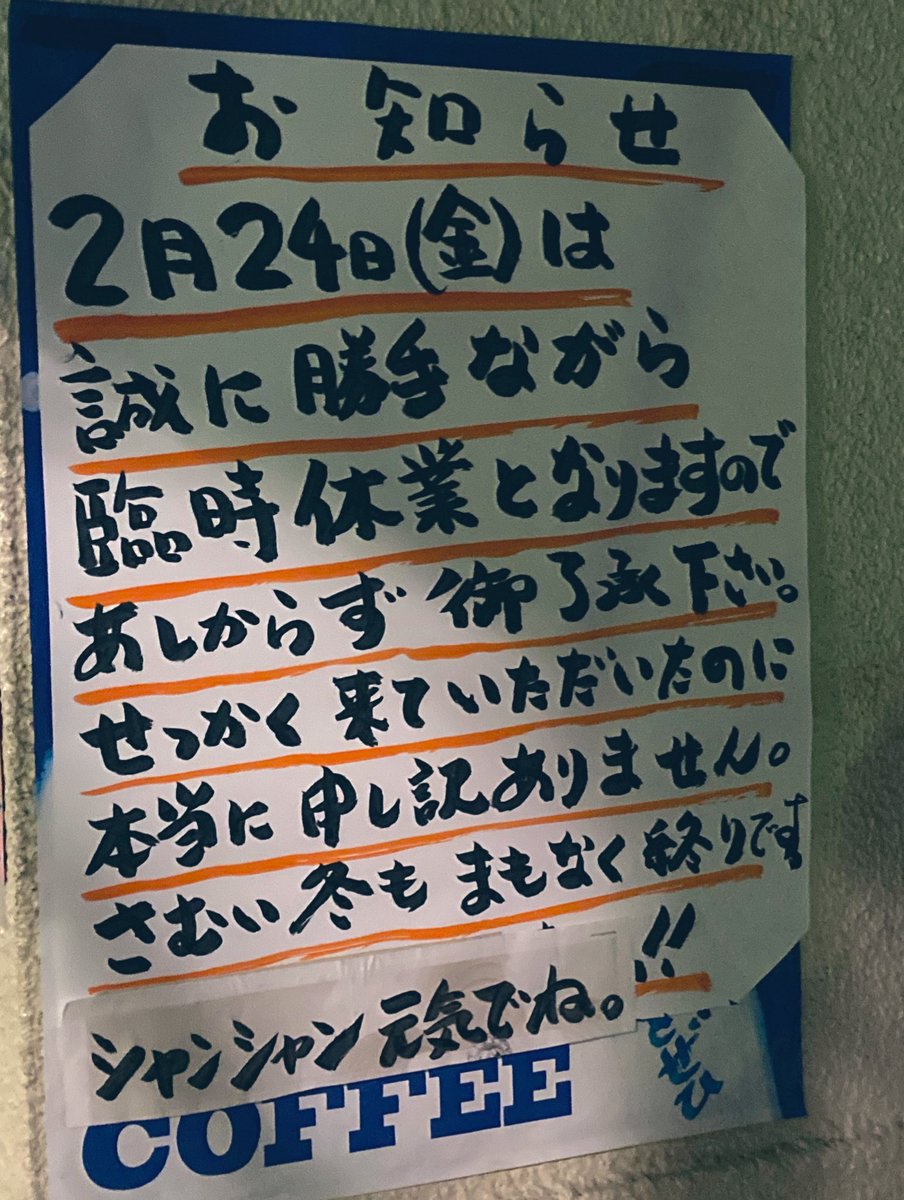 お知らせ
2月24日(金)は
誠に勝手ながら
臨時休業となりますので
あしからず御了承下さい。
せっかく来ていただいたのに
本当に申し訳ありません。
さむい冬もまもなく終りです
!!
シャンシャン元気でね。
ぜひ
COFFEE